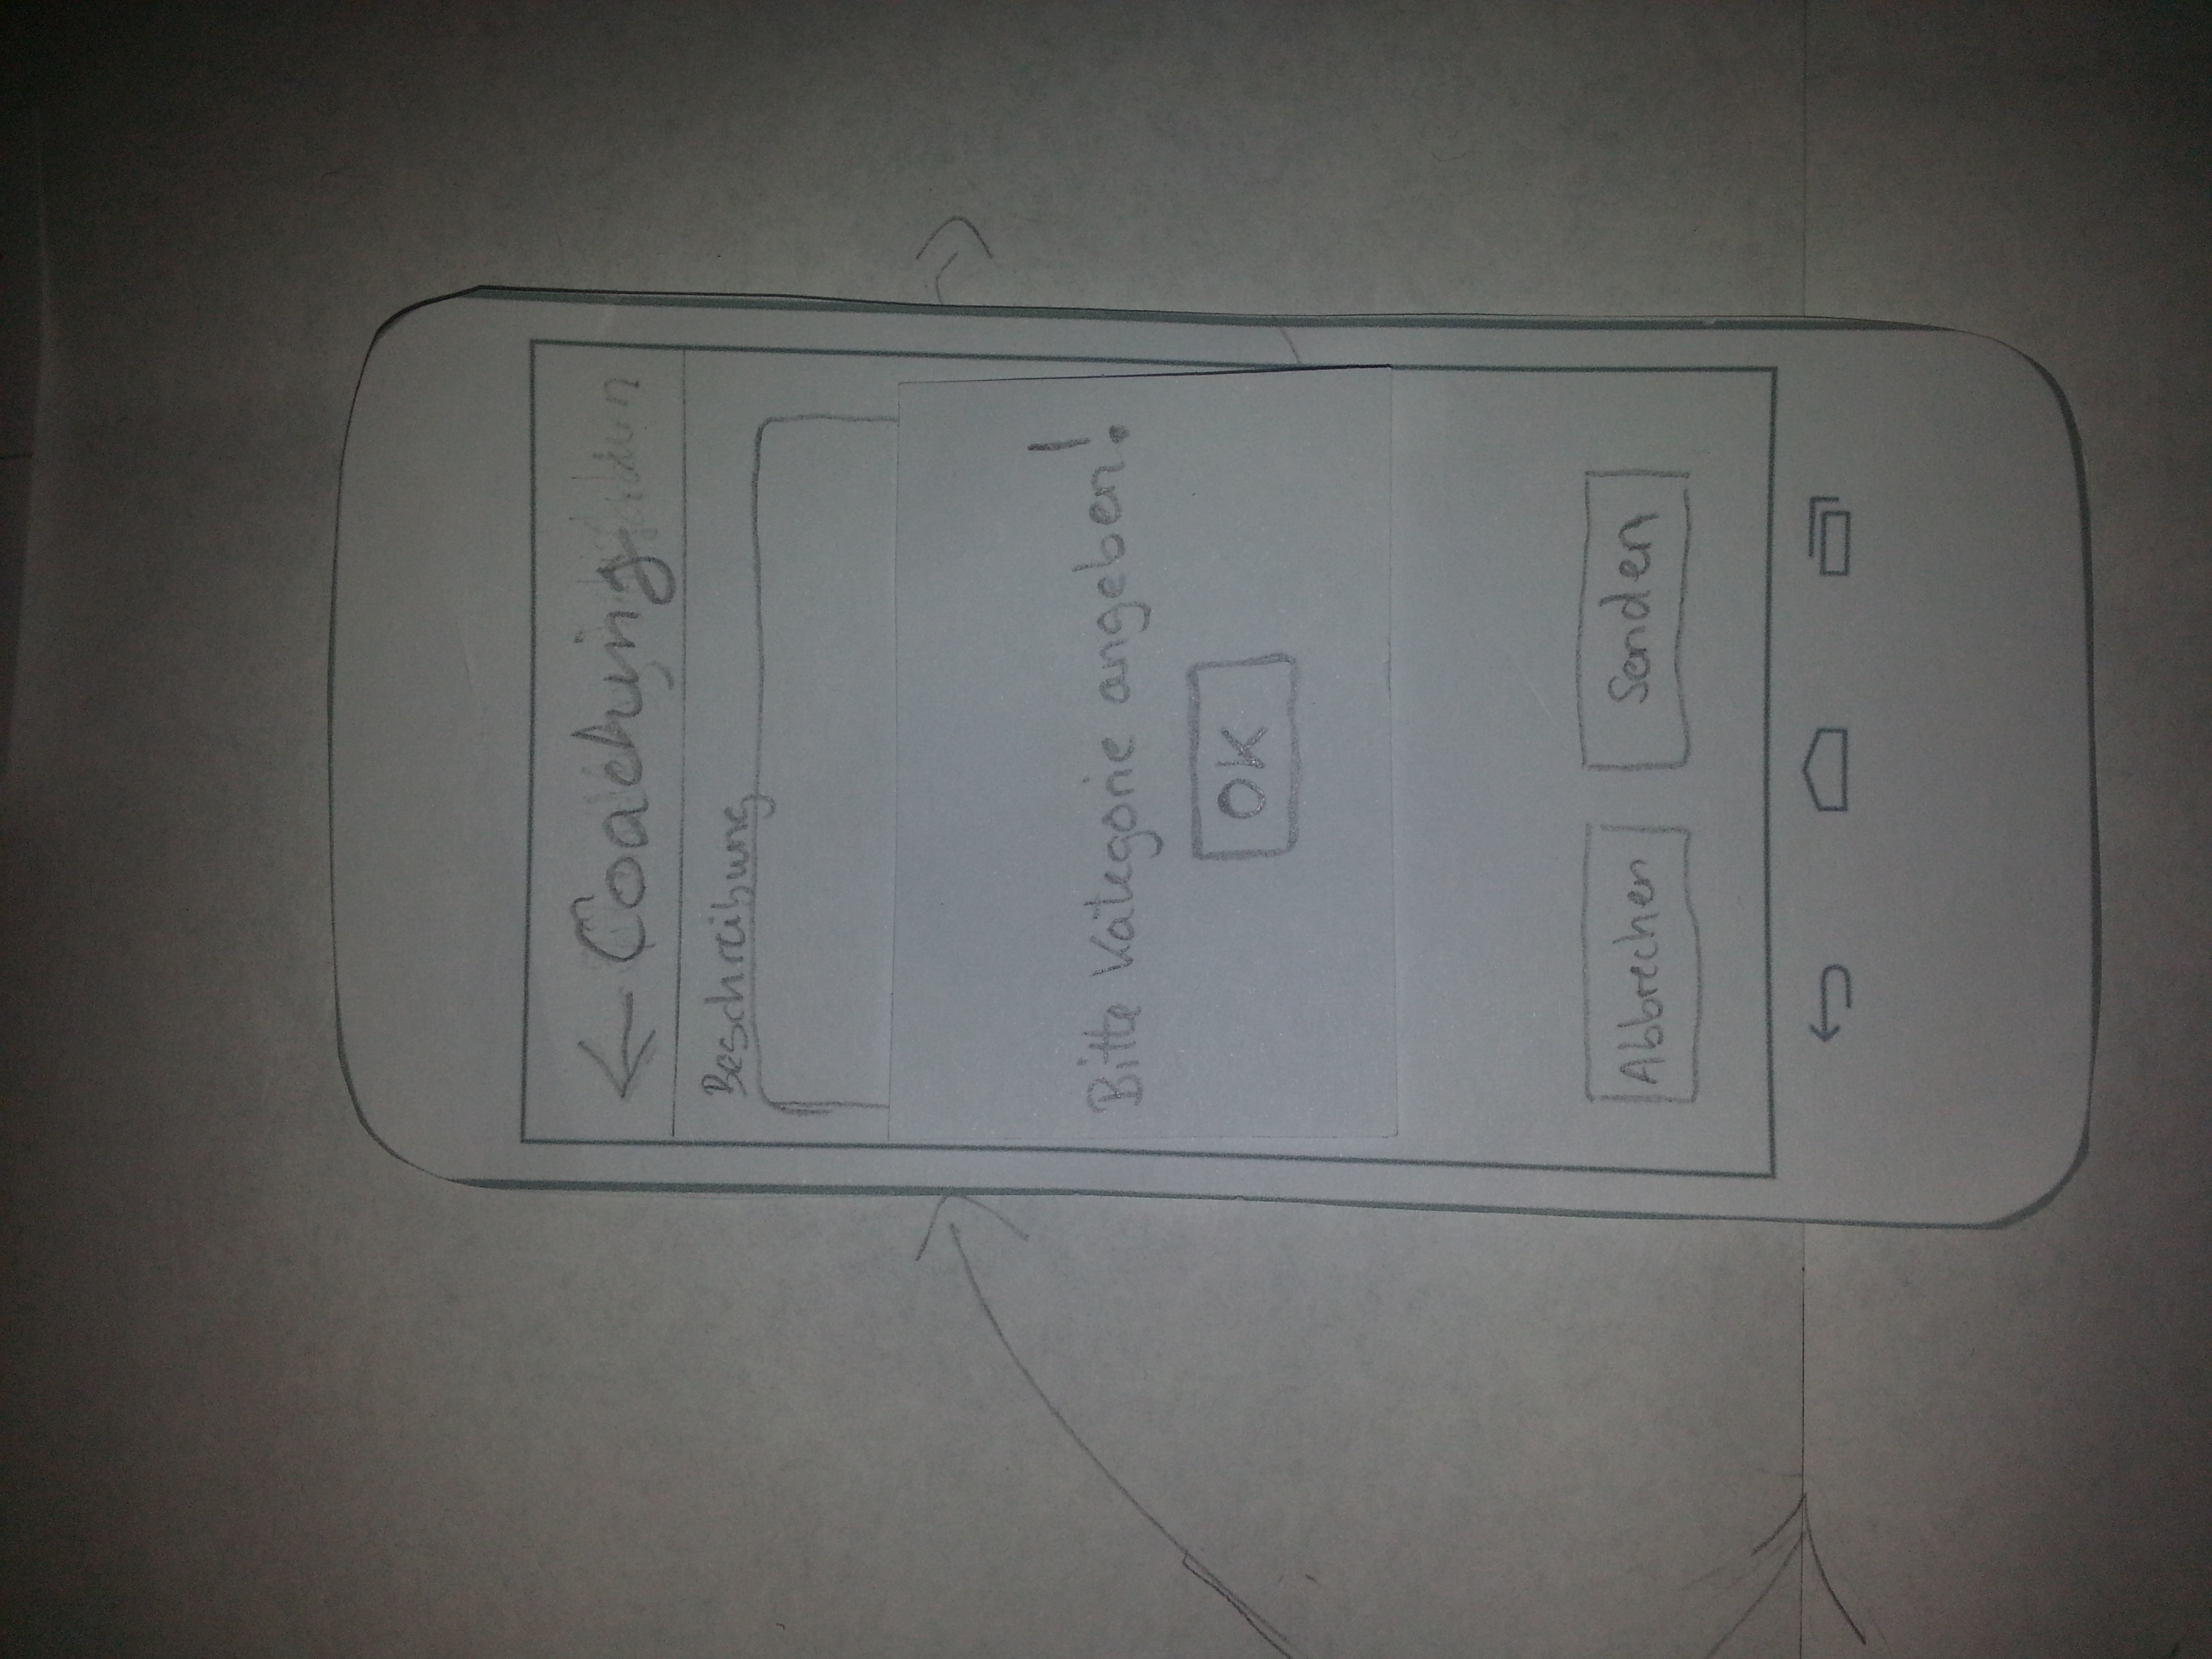 ← Coaching
Beschreibung
Bitte Kategorie angeben!
OK
Abbrechen Senden